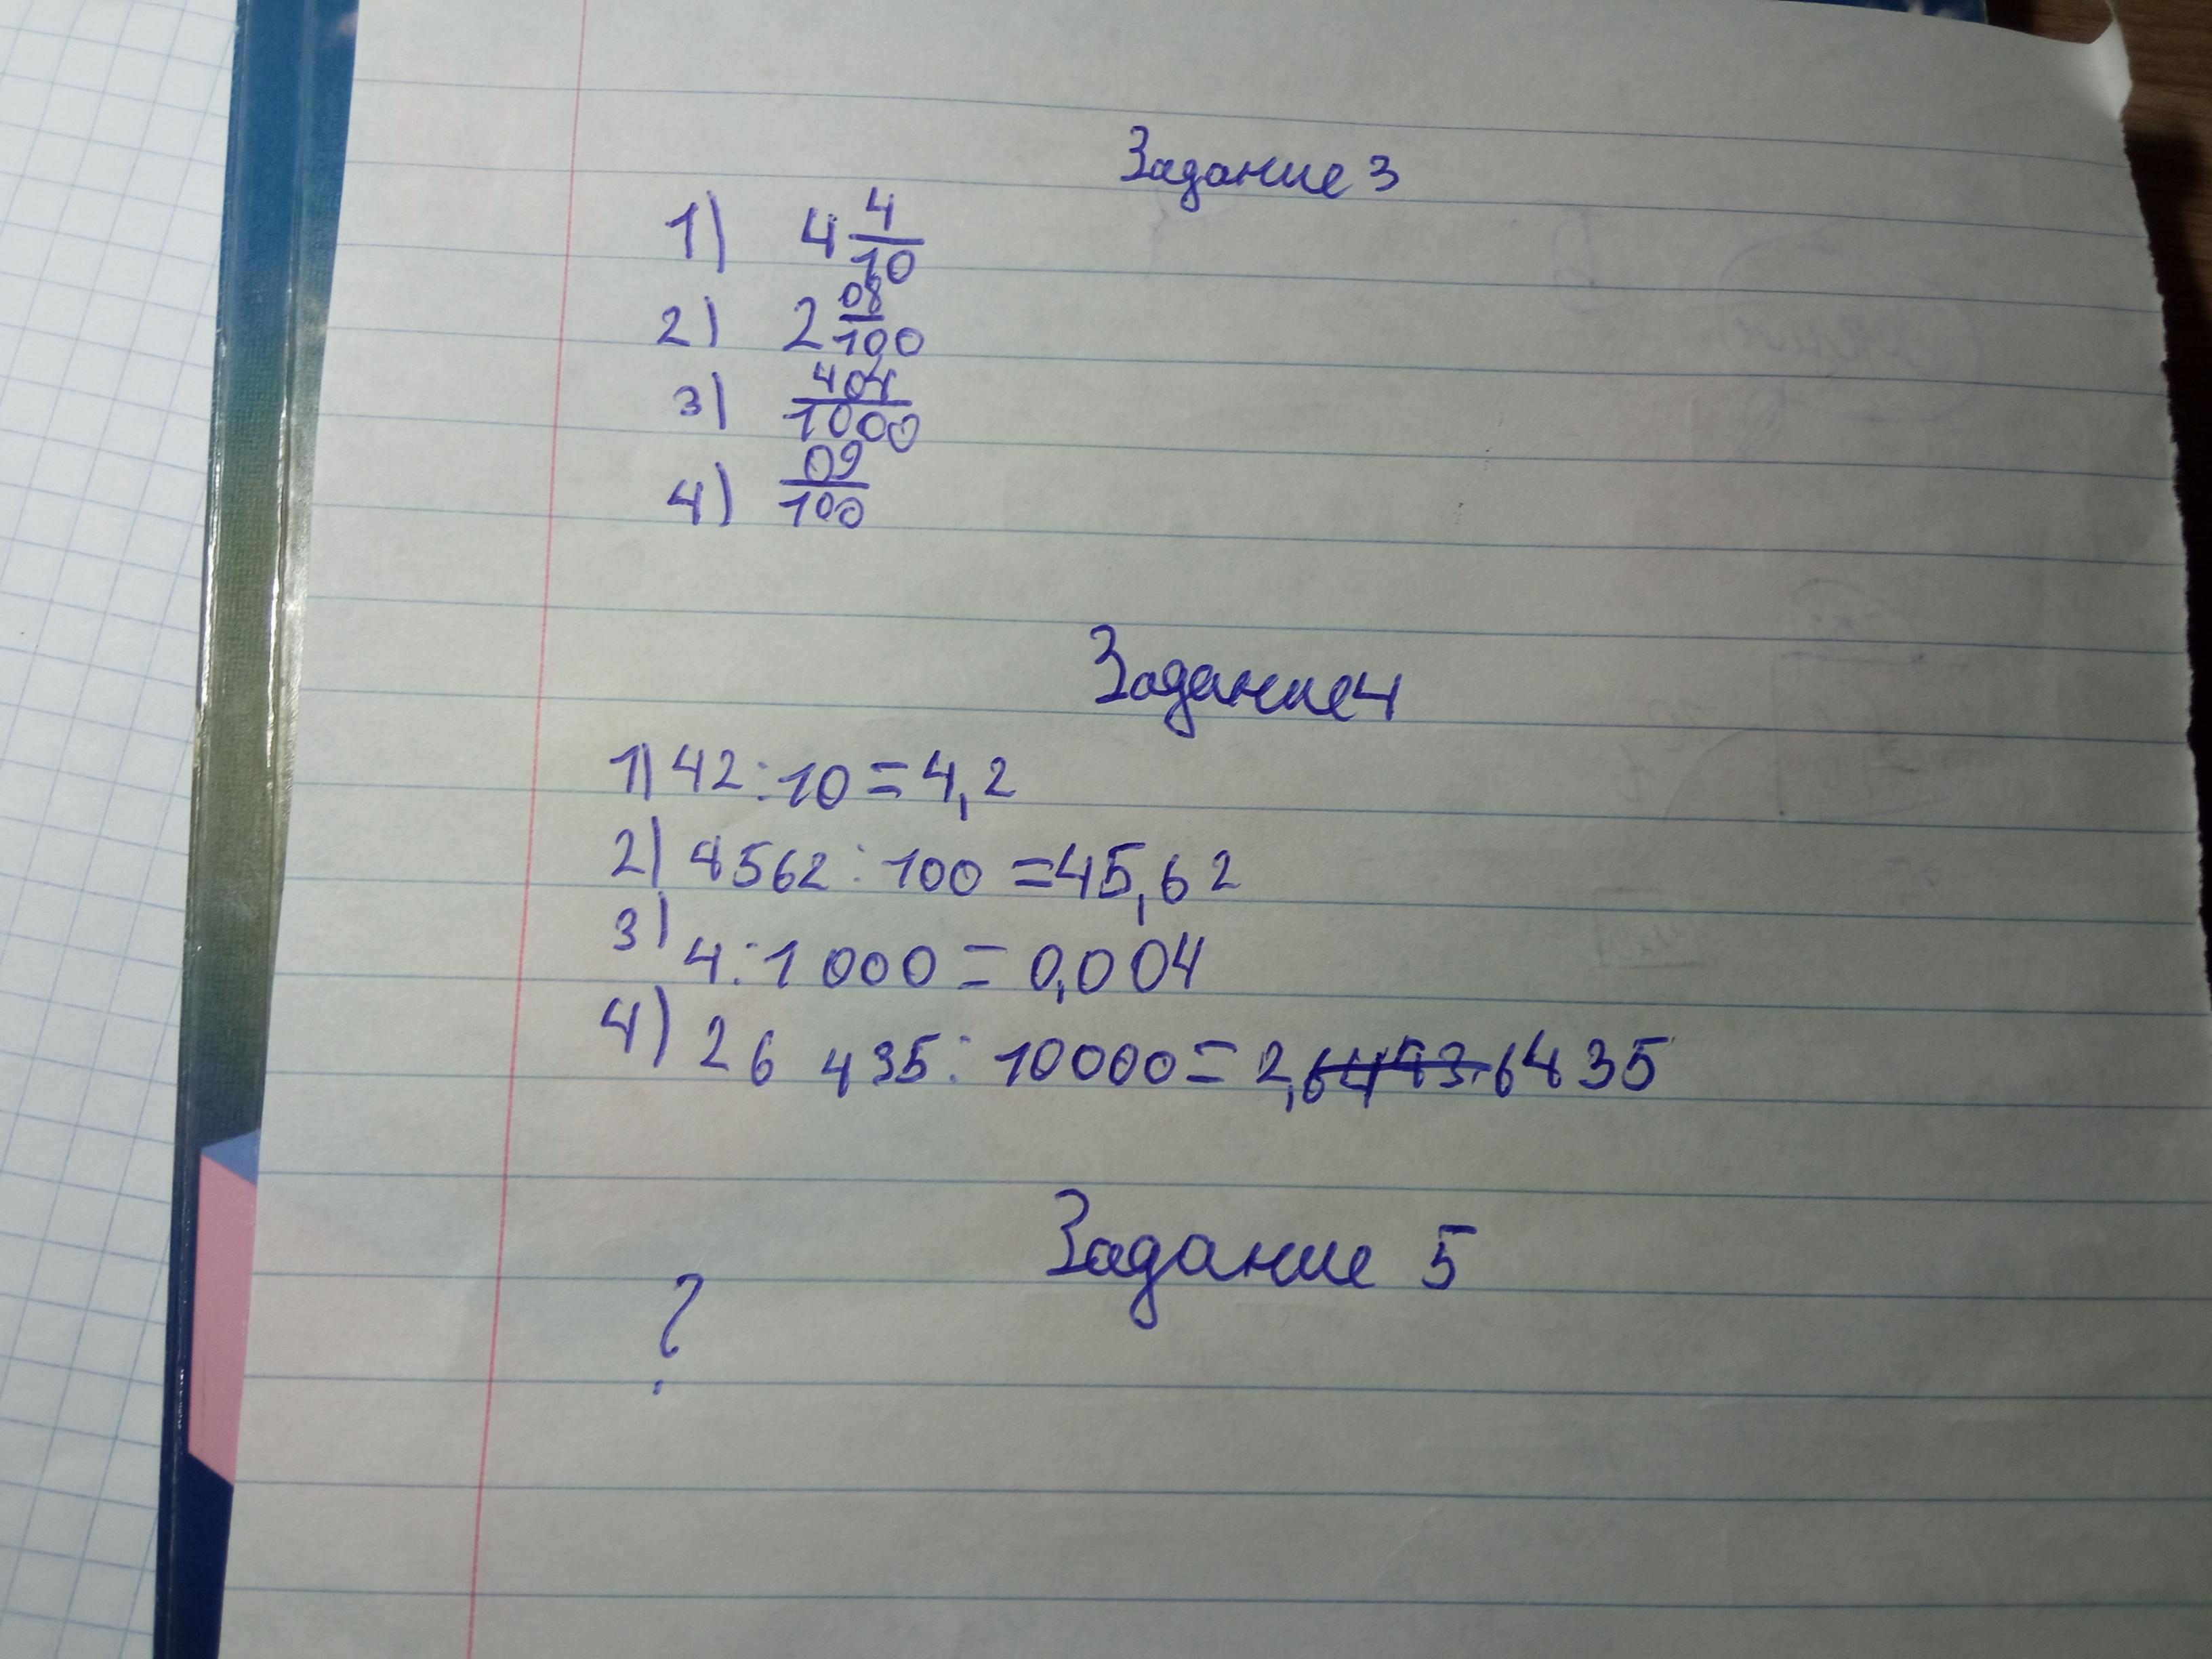 Задание 3
1) 4 4/10
2) 2 08/100
3) 404/1000
4) 09/100
Задание 4
1) 42 : 10 = 4,2
2) 4562 : 100 = 45,62
3) 4 : 1 000 = 0,004
4) 26 435 : 10000 = 2,6435
Задание 5
?